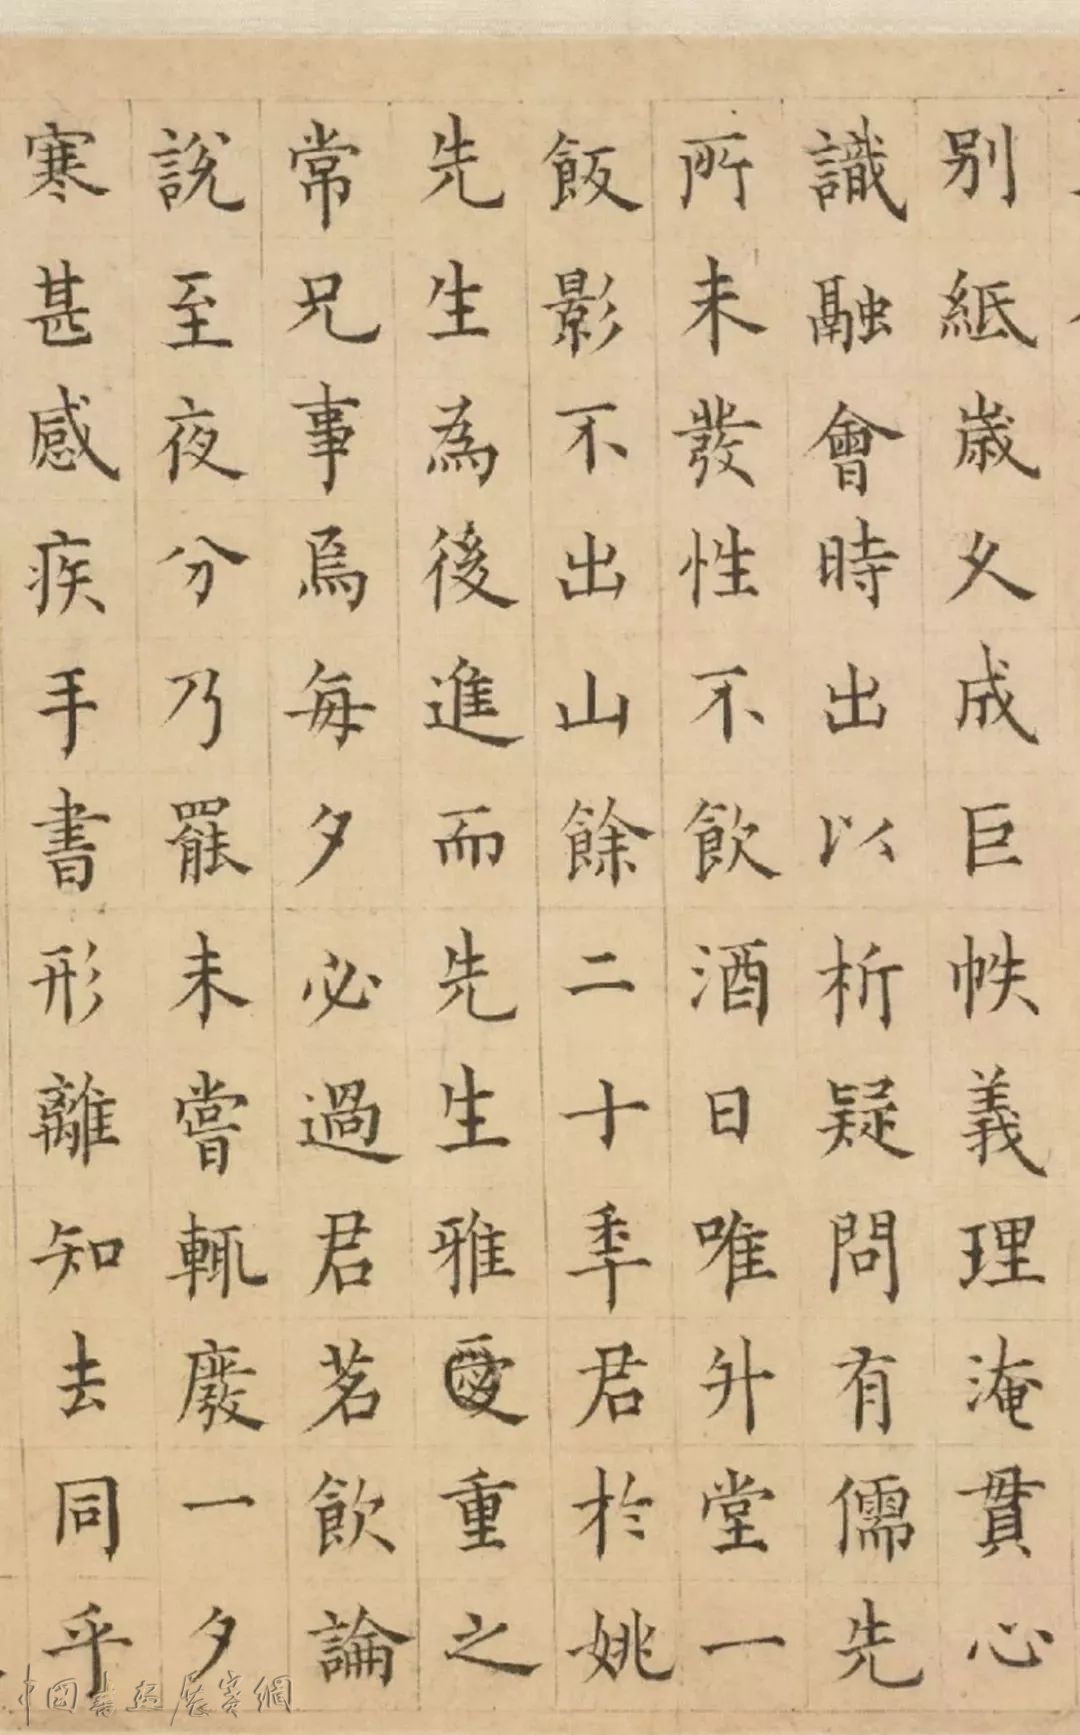 别紙歲久成巨帙義理淹貫心
識融會時出以析疑問有儒先
所未發性不飲酒日唯升堂一
飯影不出山餘二十秊君於姚
先生為後進而先生雅愛重之
常兄事焉每夕必過君茗飲論
說至夜分乃罷未嘗輒廢一夕
寒甚感疾手書形離知去同乎
中國書画展賽網